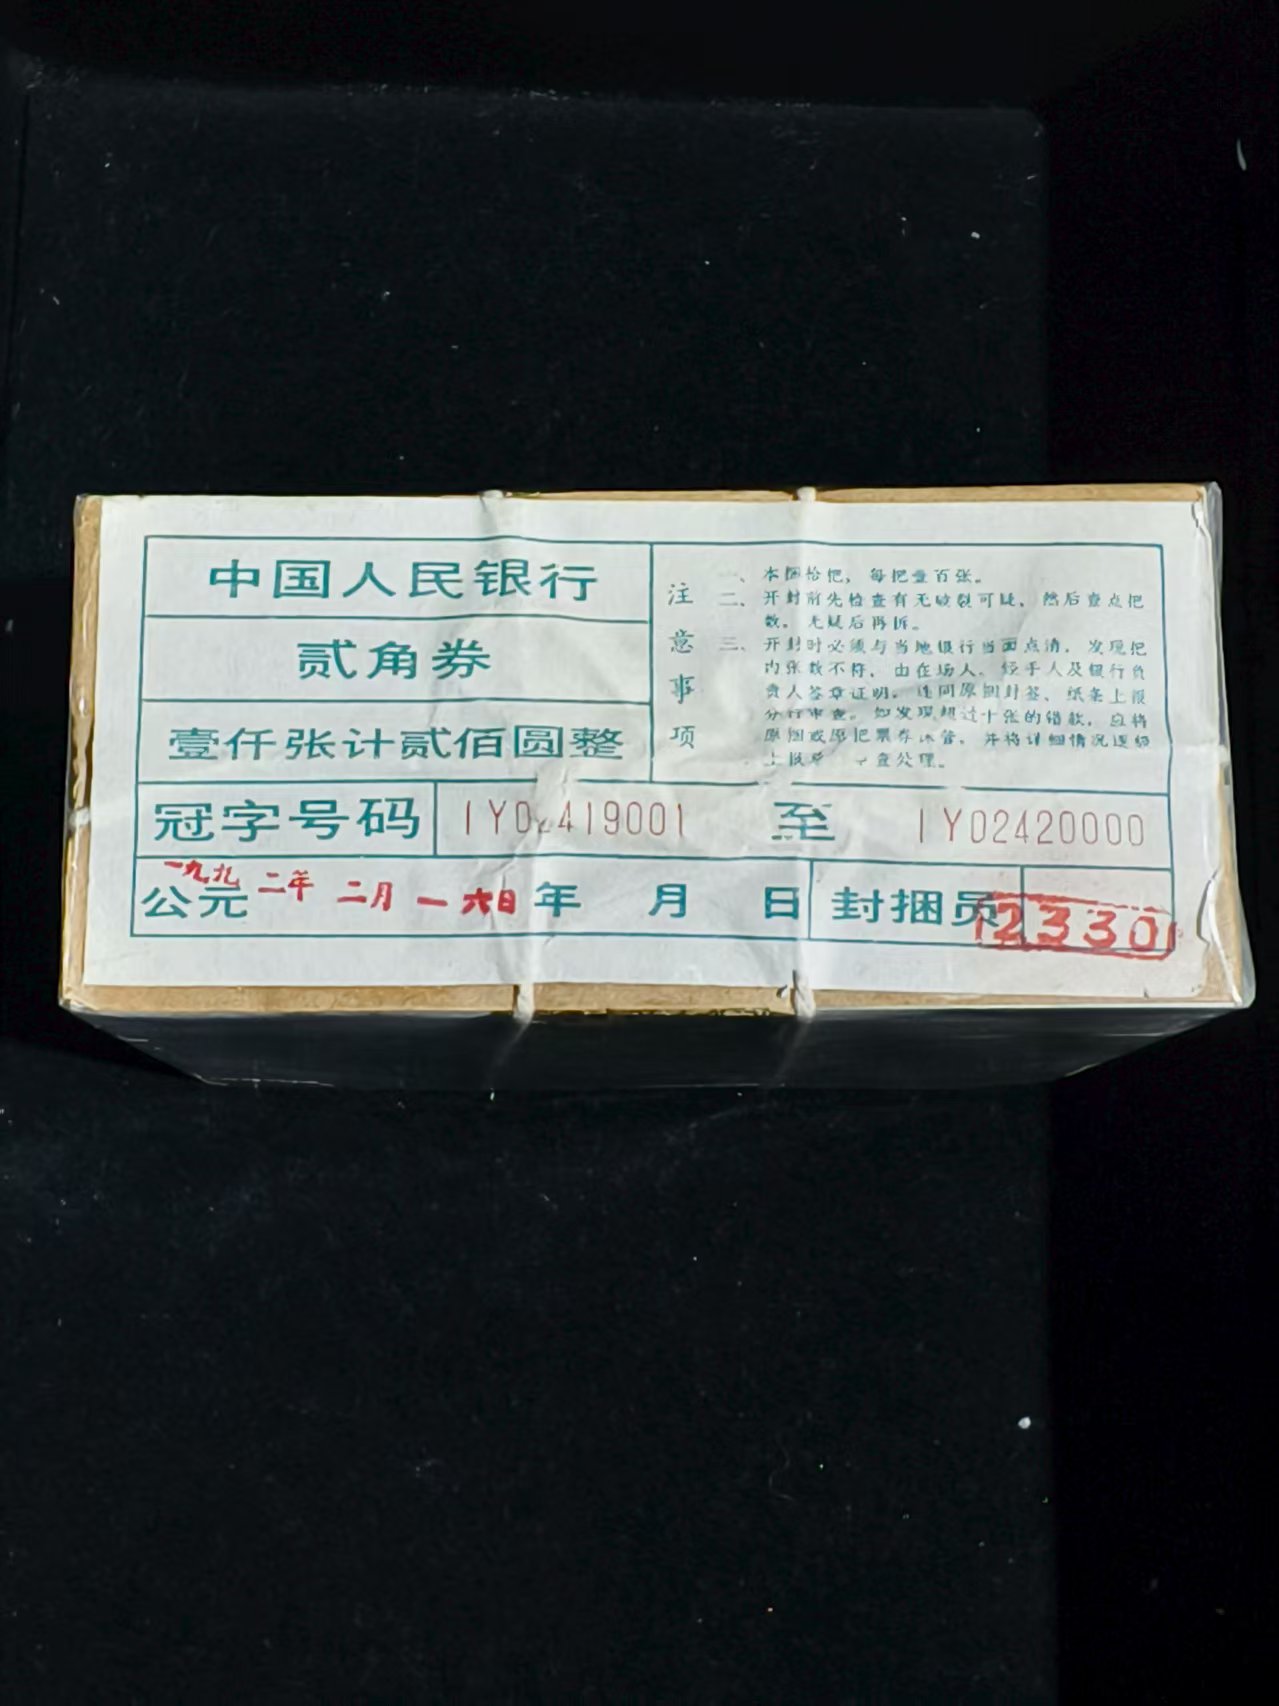 中国人民银行
贰角券
壹仟张计贰佰圆整
注意事项
一、本捆拾把，每把壹百张。
二、开封前先检查有无破裂可疑，然后查点把
数。无疑后再拆。
三、开封时必须与当地银行当面点清，发现把
内张数不符，由在场人、经手人及银行负
责人签章证明，连同原捆封签、纸条上报
分行审查。如发现超过十张的错款，应将
原捆或原把票存保管，并将详细情况逐级
上报 查处理。
冠字号码 IY02419001 至 IY02420000
一九九二年 二月 一六日
公元 年 月 日 封捆员 2330